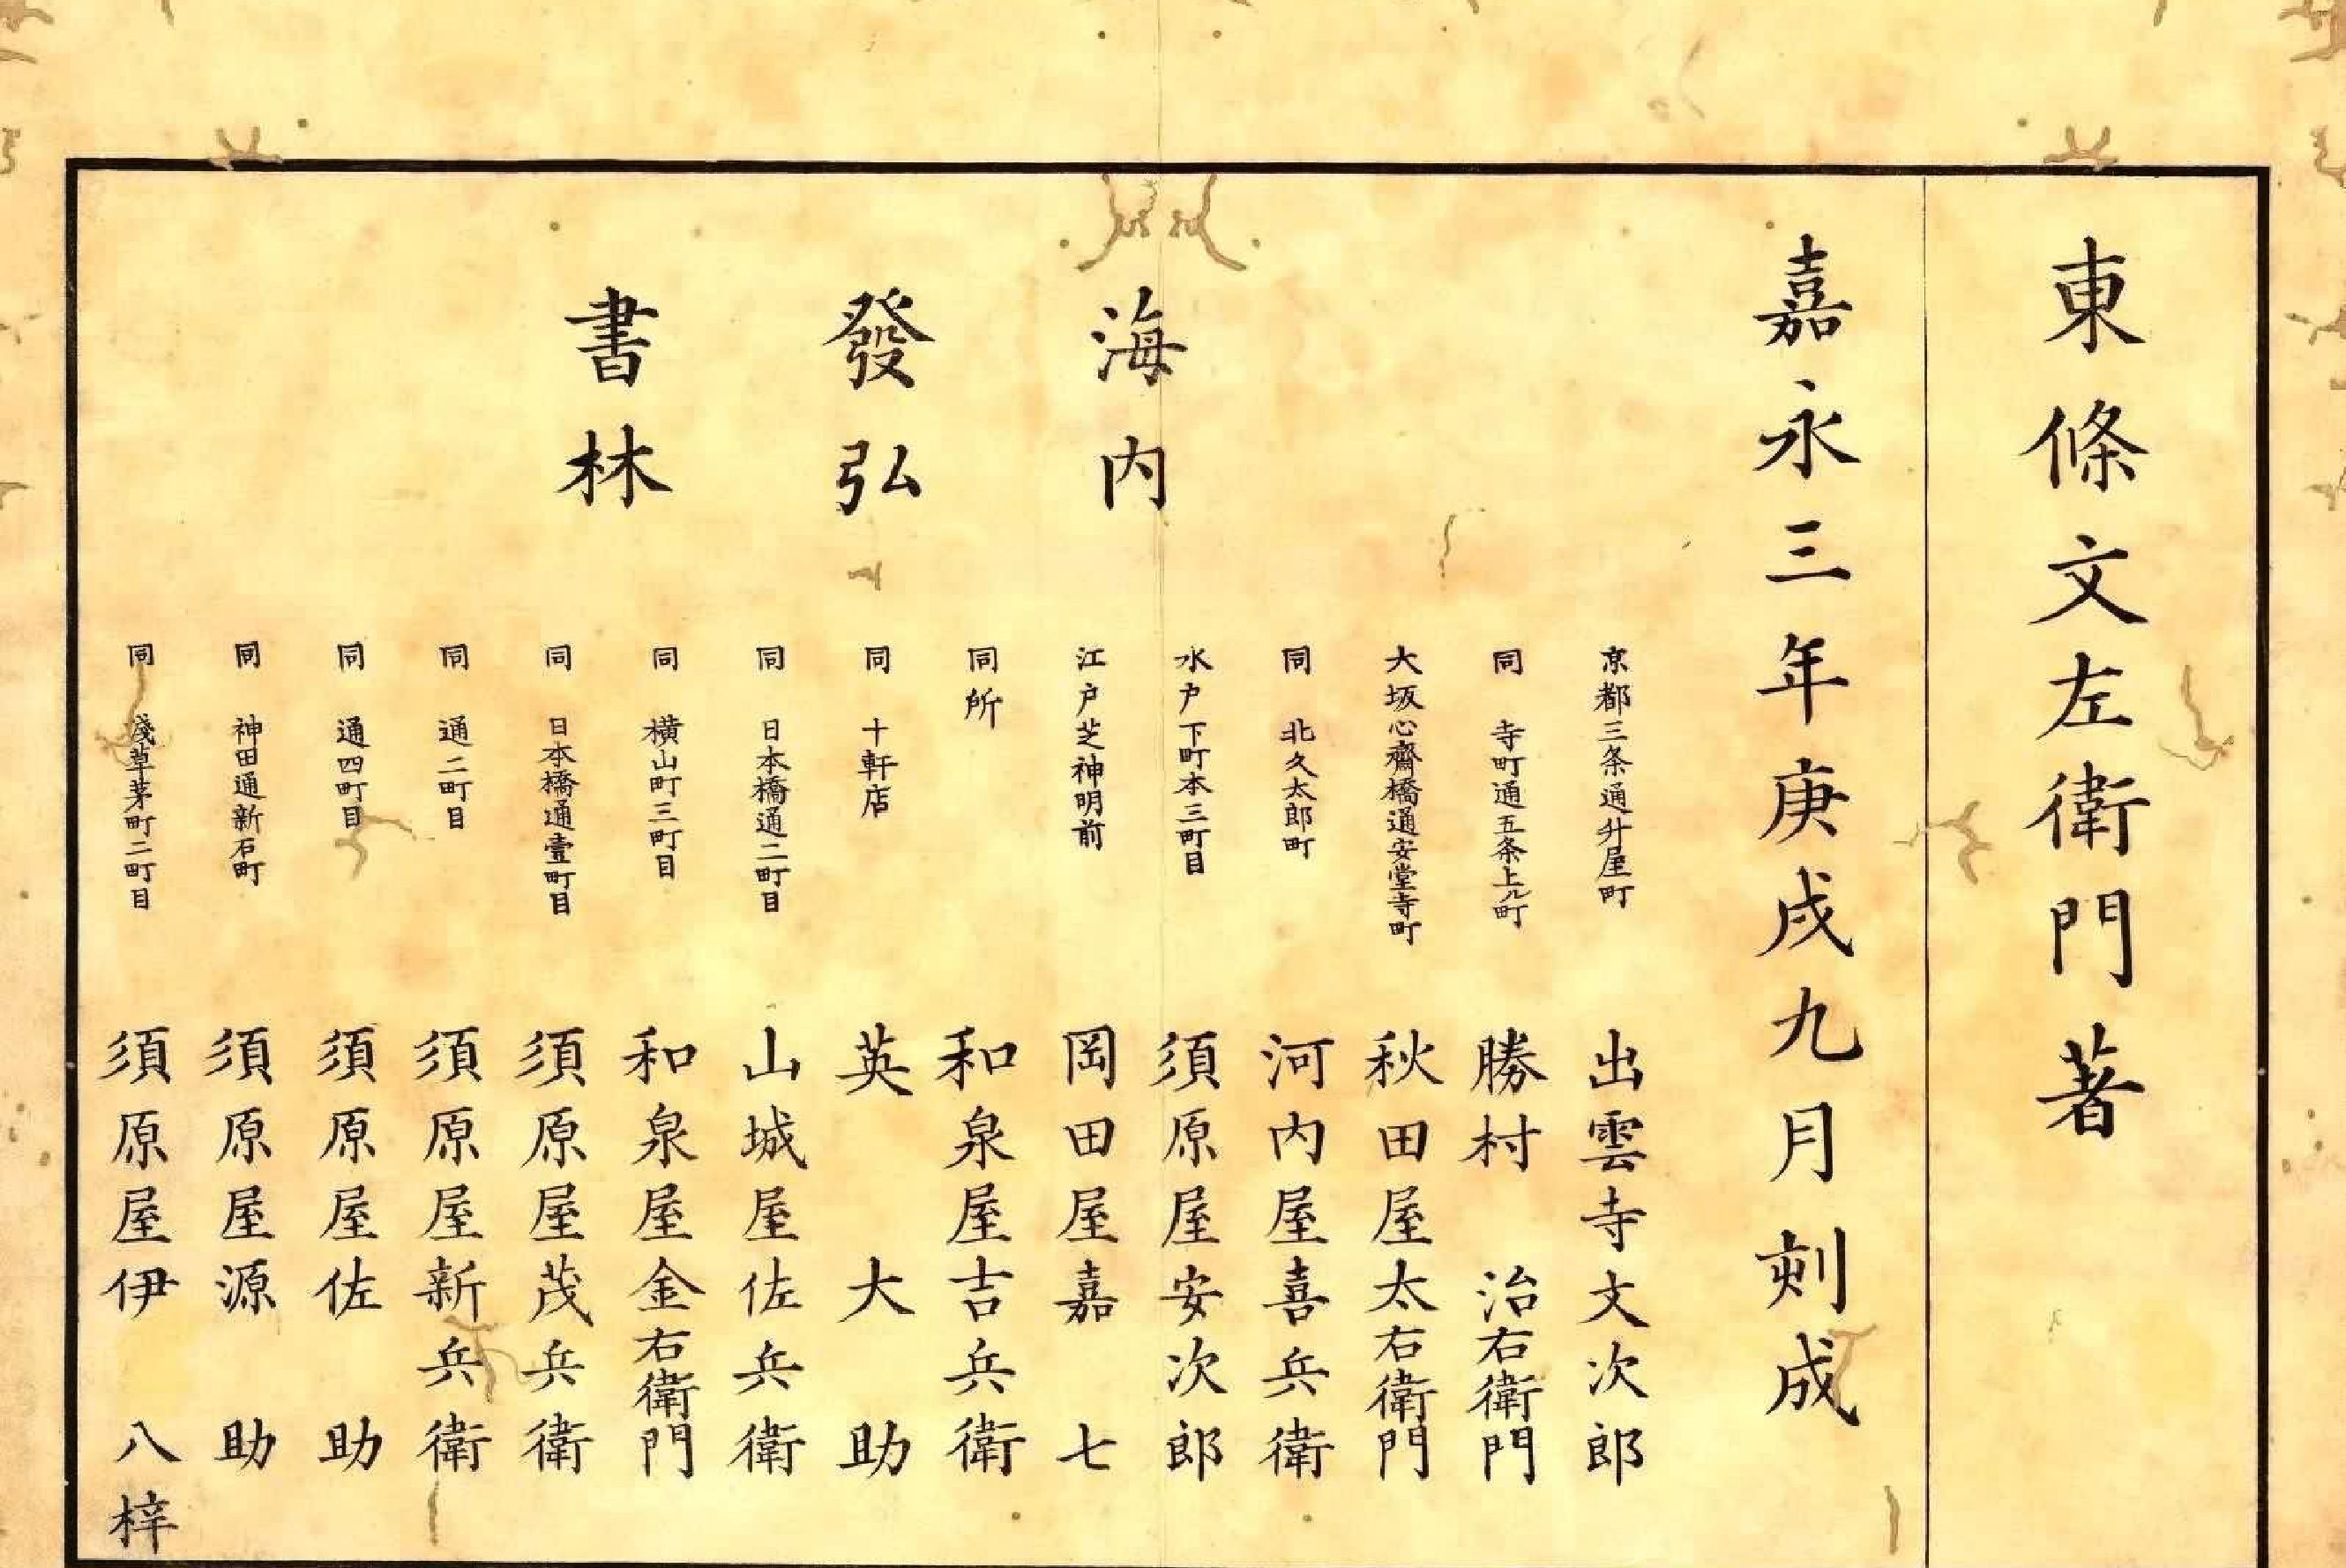 東條文左衛門著
嘉永三年庚戌九月刻成
海内
發弘
書林
京都三条通升屋町 出雲寺文次郎
同 寺町通五条上ル町 勝村治右衛門
大坂心齋橋通安堂寺町 秋田屋太右衛門
同 北久太郎町 河内屋喜兵衛
水戸下町本三町目 須原屋安次郎
江戸芝神明前 岡田屋嘉七
同所 和泉屋吉兵衛
同 十軒店 英大助
同 日本橋通二町目 山城屋佐兵衛
同 横山町三町目 和泉屋金右衛門
同 日本橋通壹町目 須原屋茂兵衛
同 通二町目 須原屋新兵衛
同 通四町目 須原屋佐助
同 神田通新石町 須原屋源助
同 淺草茅町二町目 須原屋伊八梓